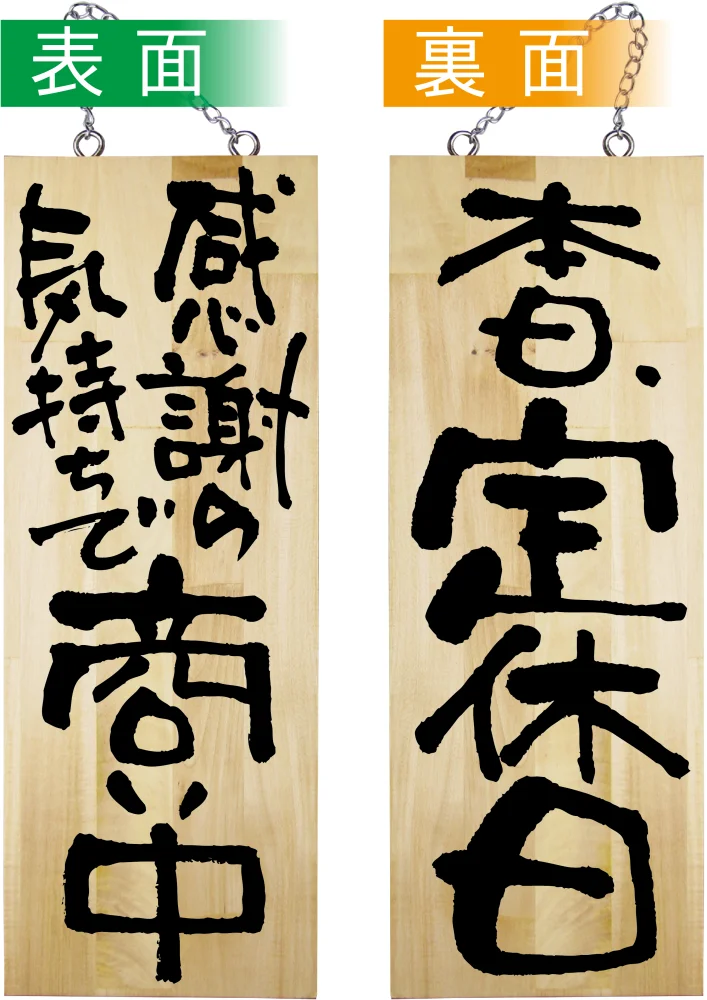 表面
感謝の
気持ちで
商い中
裏面
本日、定休日